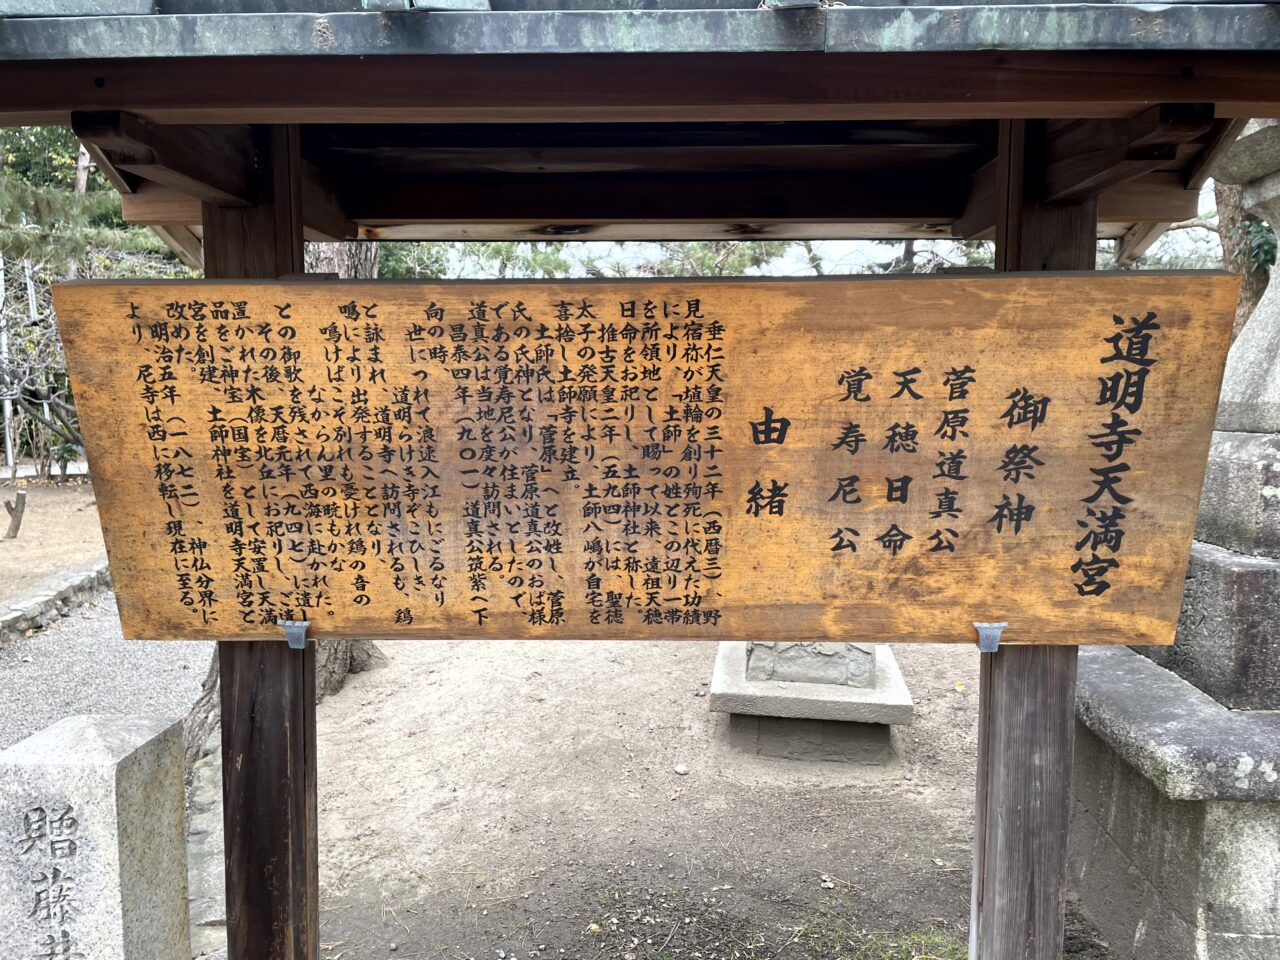 道明寺天満宮
御祭神
菅原道真公
天穂日命
覚寿尼公
由緒
垂仁天皇の三十二年(西暦三)、野
見宿祢が埴輪を創り殉死に代えた功績
により、「土師」の姓とこの辺り一帯
を所領地として賜って以来、遠祖天穂
日命をお祀りし、土師神社と称した。
推古天皇二年(五九四)には、聖徳
太子の発願により、土師八嶋が自宅を
喜捨し土師寺を建立。
土師氏は「菅原」へと改姓し、菅原
氏の氏神となり、菅原道真公のおば様
である覚寿尼公が住まいとしたので、
道真公は当地を度々訪問される。
昌泰四年(九〇一)道真公筑紫へ下
向の時、
世につれて浪速入江もにごるなり
道明らけき寺ぞこひしき
と詠まれ、道明寺へ訪問されるも、鶏
鳴により出発することとなり、
鳴けばこそ別れも憂けれ鶏の音の
なからん里の暁もがな
との御歌を残されて西海に赴かれた。
その後、天暦元年(九四七)、ご遺
品をご神宝(国宝)として安置し天満
置かれた木像を北丘にお祀りし、ご遺し
宮を創建、土師神社を道明寺天満宮と
改めた。
明治五年(一八七二)、神仏分界に
より、尼寺は西に移転し現在に至る。
贈藤井